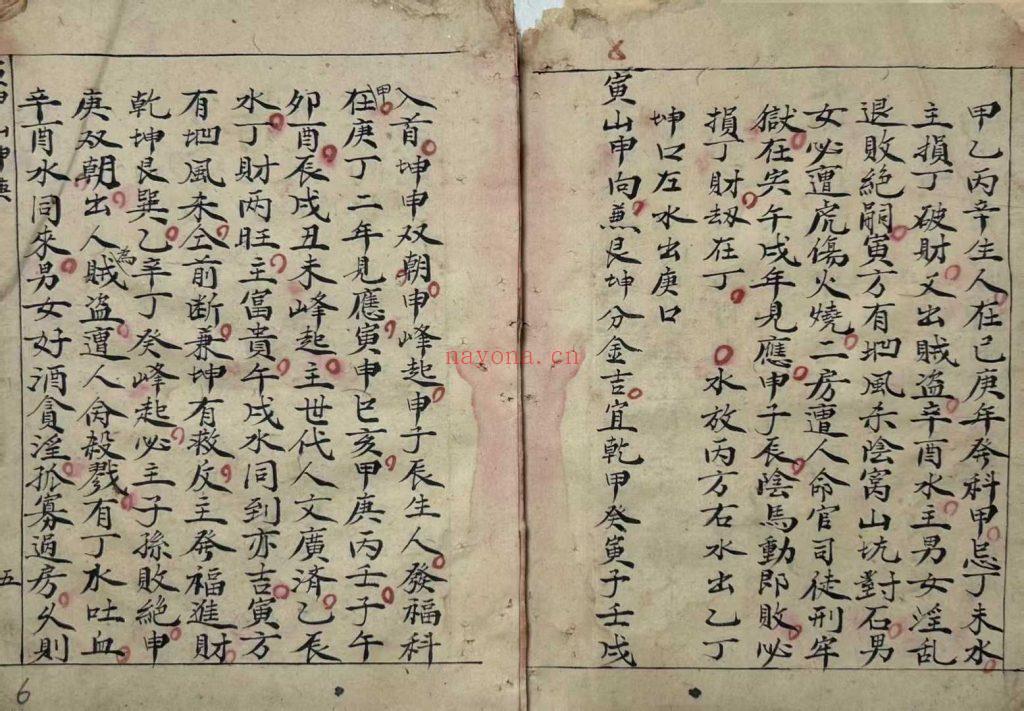 甲乙丙辛生人在巳庚年癸科甲忌丁未水
主損丁破財又出賊盜辛酉水主男女淫乱
退敗絕嗣寅方有坳風杀陰窩山坑對石男
女必遭虎傷火燒二房遭人命官司徒刑牢
獄在寅午戌年見應申子辰陰馬動即敗必
損丁財刼在丁 水放丙方右水出乙丁
坤口左水出庚口
寅山申向兼艮坤分金吉宜乾甲癸寅子壬戌
入首坤申双朝申峰起申子辰生人發福科
甲在庚丁二年見應寅申巳亥甲庚丙壬子午
卯酉辰戌丑未峰起主世代人文廣濟乙辰
水丁財两旺主富貴午戌水同到亦吉寅方
有坳風未仝前断兼坤有救反主發福進財
乾坤艮巽乙辛丁癸峰起必主子孫敗絕申
庚双朝出人為賊盜遭人侖殺戮有丁水吐血
辛酉水同來男女好酒貪淫孤寡過房久則
五
6
nayona.cn